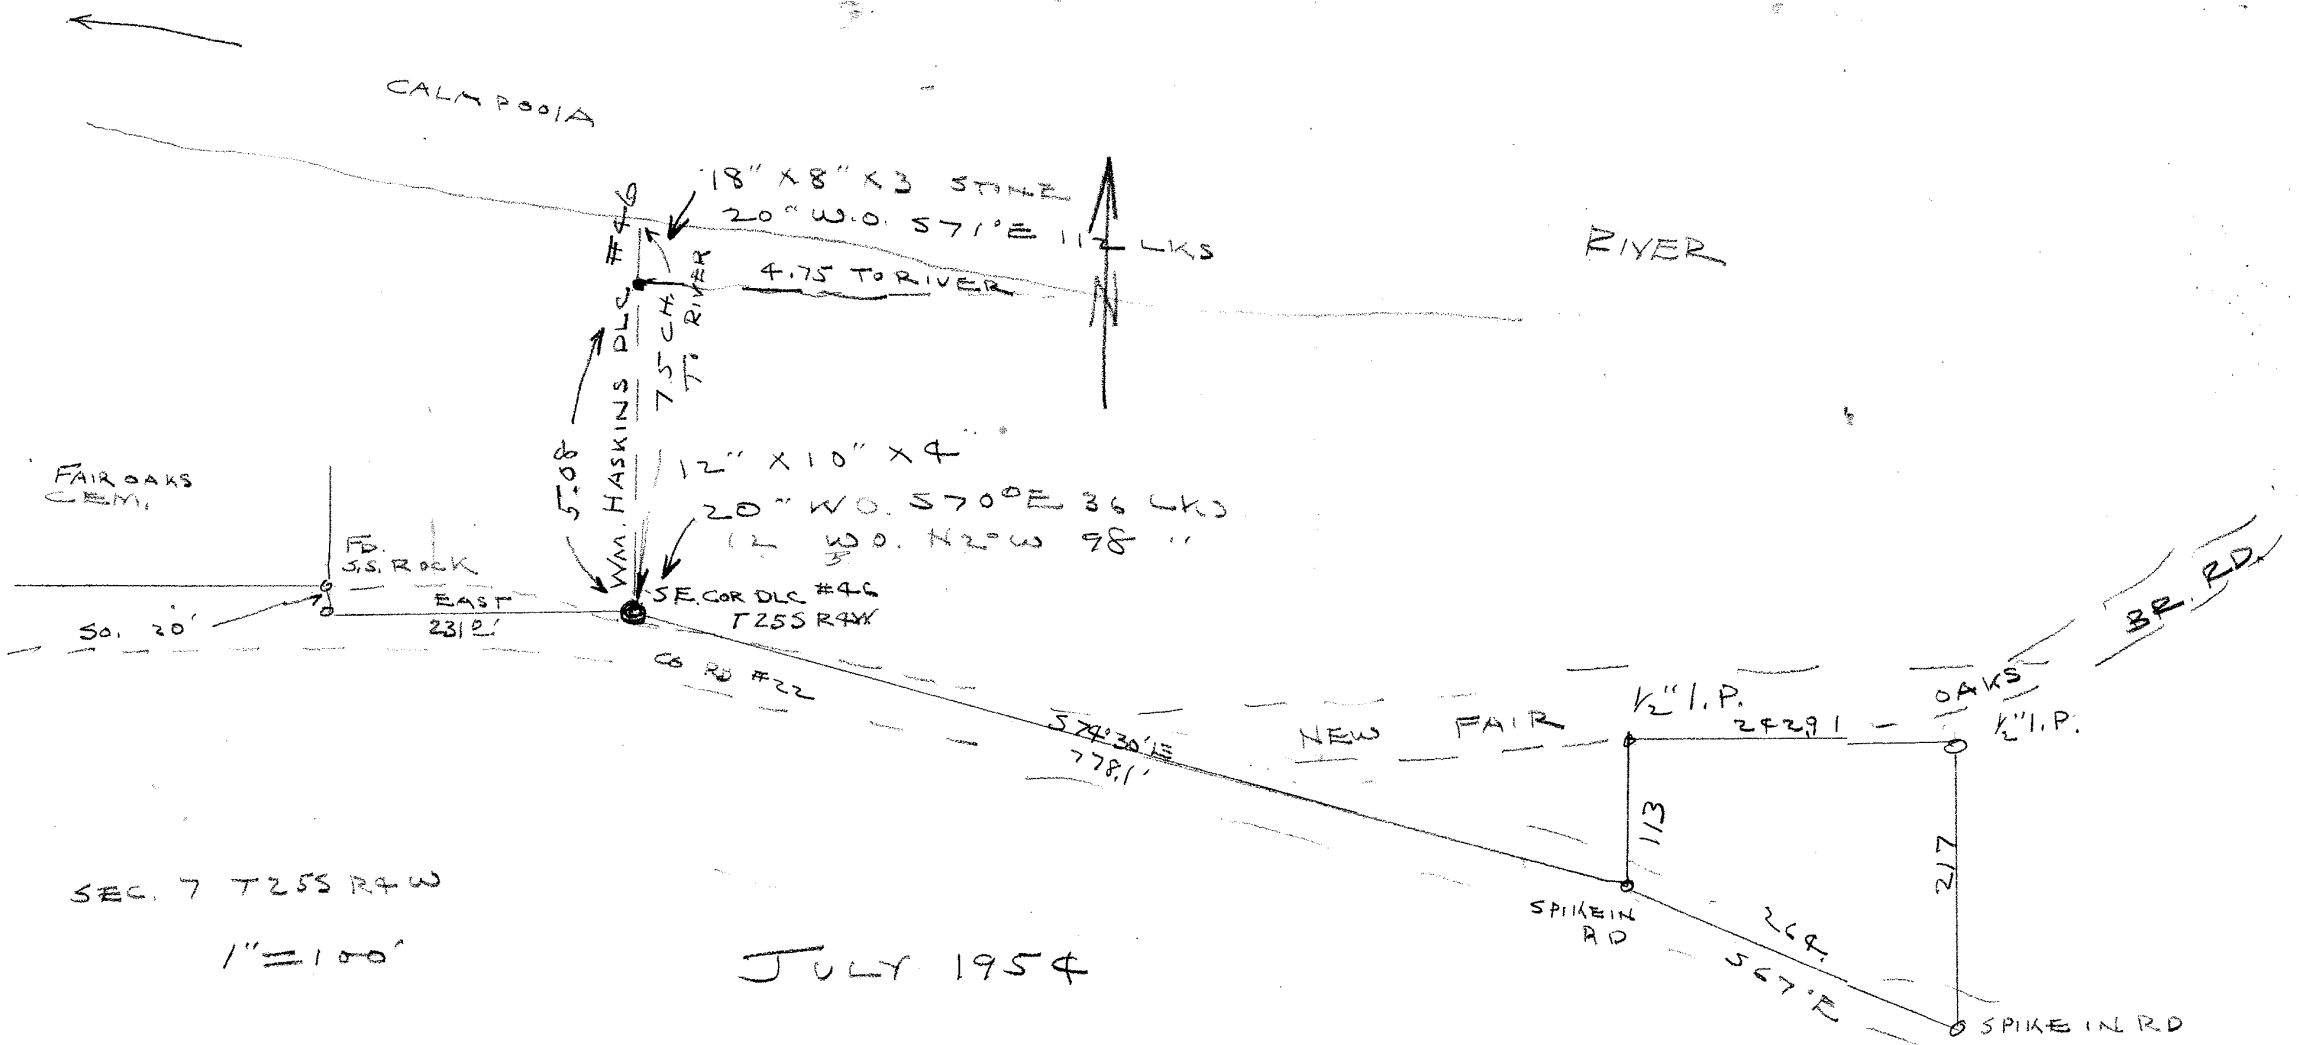 CALMPOOIA
18" X 8" X 3 STONE
20" W.O. S71°E 112 LKS
4.75 TO RIVER
RIVER
N
WM. HASKINS DLC #46
7.5 CH.
TO RIVER
5.08
12" X 10" X 4"
20" W.O. S70°E 36 LKS
12 W.O. N2°W 98 "
FAIR OAKS
CEM.
FD.
S.S. ROCK
SO. 20'
EAST
231.0'
S.E. COR DLC #46
T25S R4W
CO RD #22
S74°30'E
778.1'
NEW FAIR OAKS BR. RD.
1/2" I.P.
242.91
1/2" I.P.
113
217
SPIKE IN
RD
264.
S67°E
SPIKE IN RD
SEC. 7 T25S R4W
1"=100'
JULY 1954